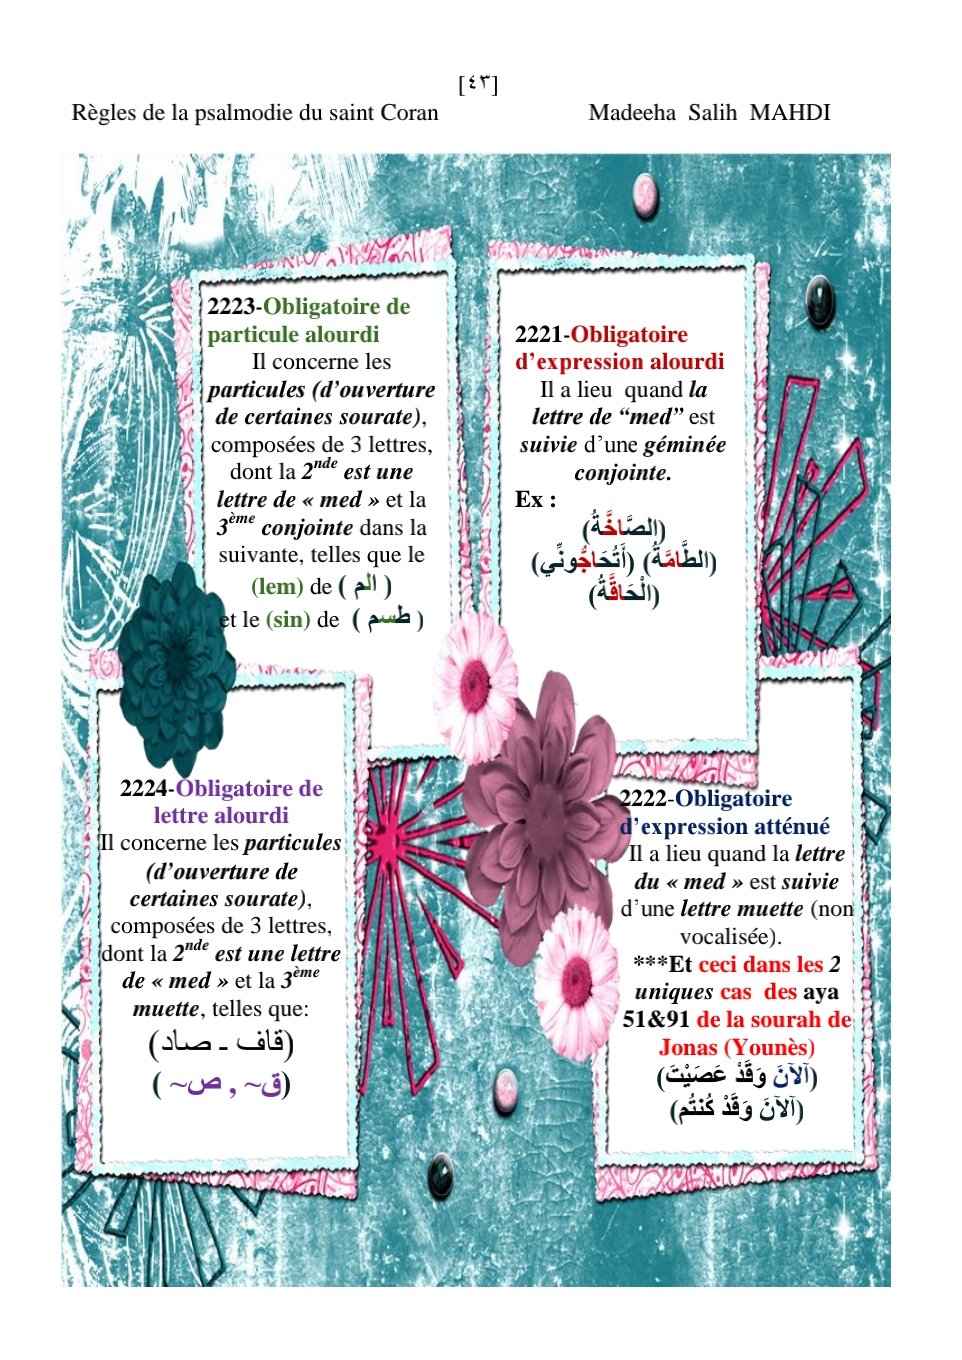 [٤٣]
Règles de la psalmodie du saint Coran Madeeha Salih MAHDI
2223-Obligatoire de
particule alourdi
Il concerne les
particules (d'ouverture
de certaines sourate),
composées de 3 lettres,
dont la 2nde est une
lettre de « med » et la
3ème conjointe dans la
suivante, telles que le
(lem) de ( الم )
et le (sin) de ( طسم )
2221-Obligatoire
d'expression alourdi
Il a lieu quand la
lettre de “med” est
suivie d'une géminée
conjointe.
Ex :
(الصَّاخَّةُ)
(الطَّامَّةُ) (أَتُحَاجُّونِّي)
(الْحَاقَّةُ)
2224-Obligatoire de
lettre alourdi
Il concerne les particules
(d'ouverture de
certaines sourate),
composées de 3 lettres,
dont la 2nde est une lettre
de « med » et la 3ème
muette, telles que:
(قاف - صاد)
(ق~ , ص~ )
2222-Obligatoire
d'expression atténué
Il a lieu quand la lettre
du « med » est suivie
d'une lettre muette (non
vocalisée).
***Et ceci dans les 2
uniques cas des aya
51&91 de la sourah de
Jonas (Younès)
(آلآنَ وَقَدْ عَصَيْتَ)
(آلآنَ وَقَدْ كُنتُم)